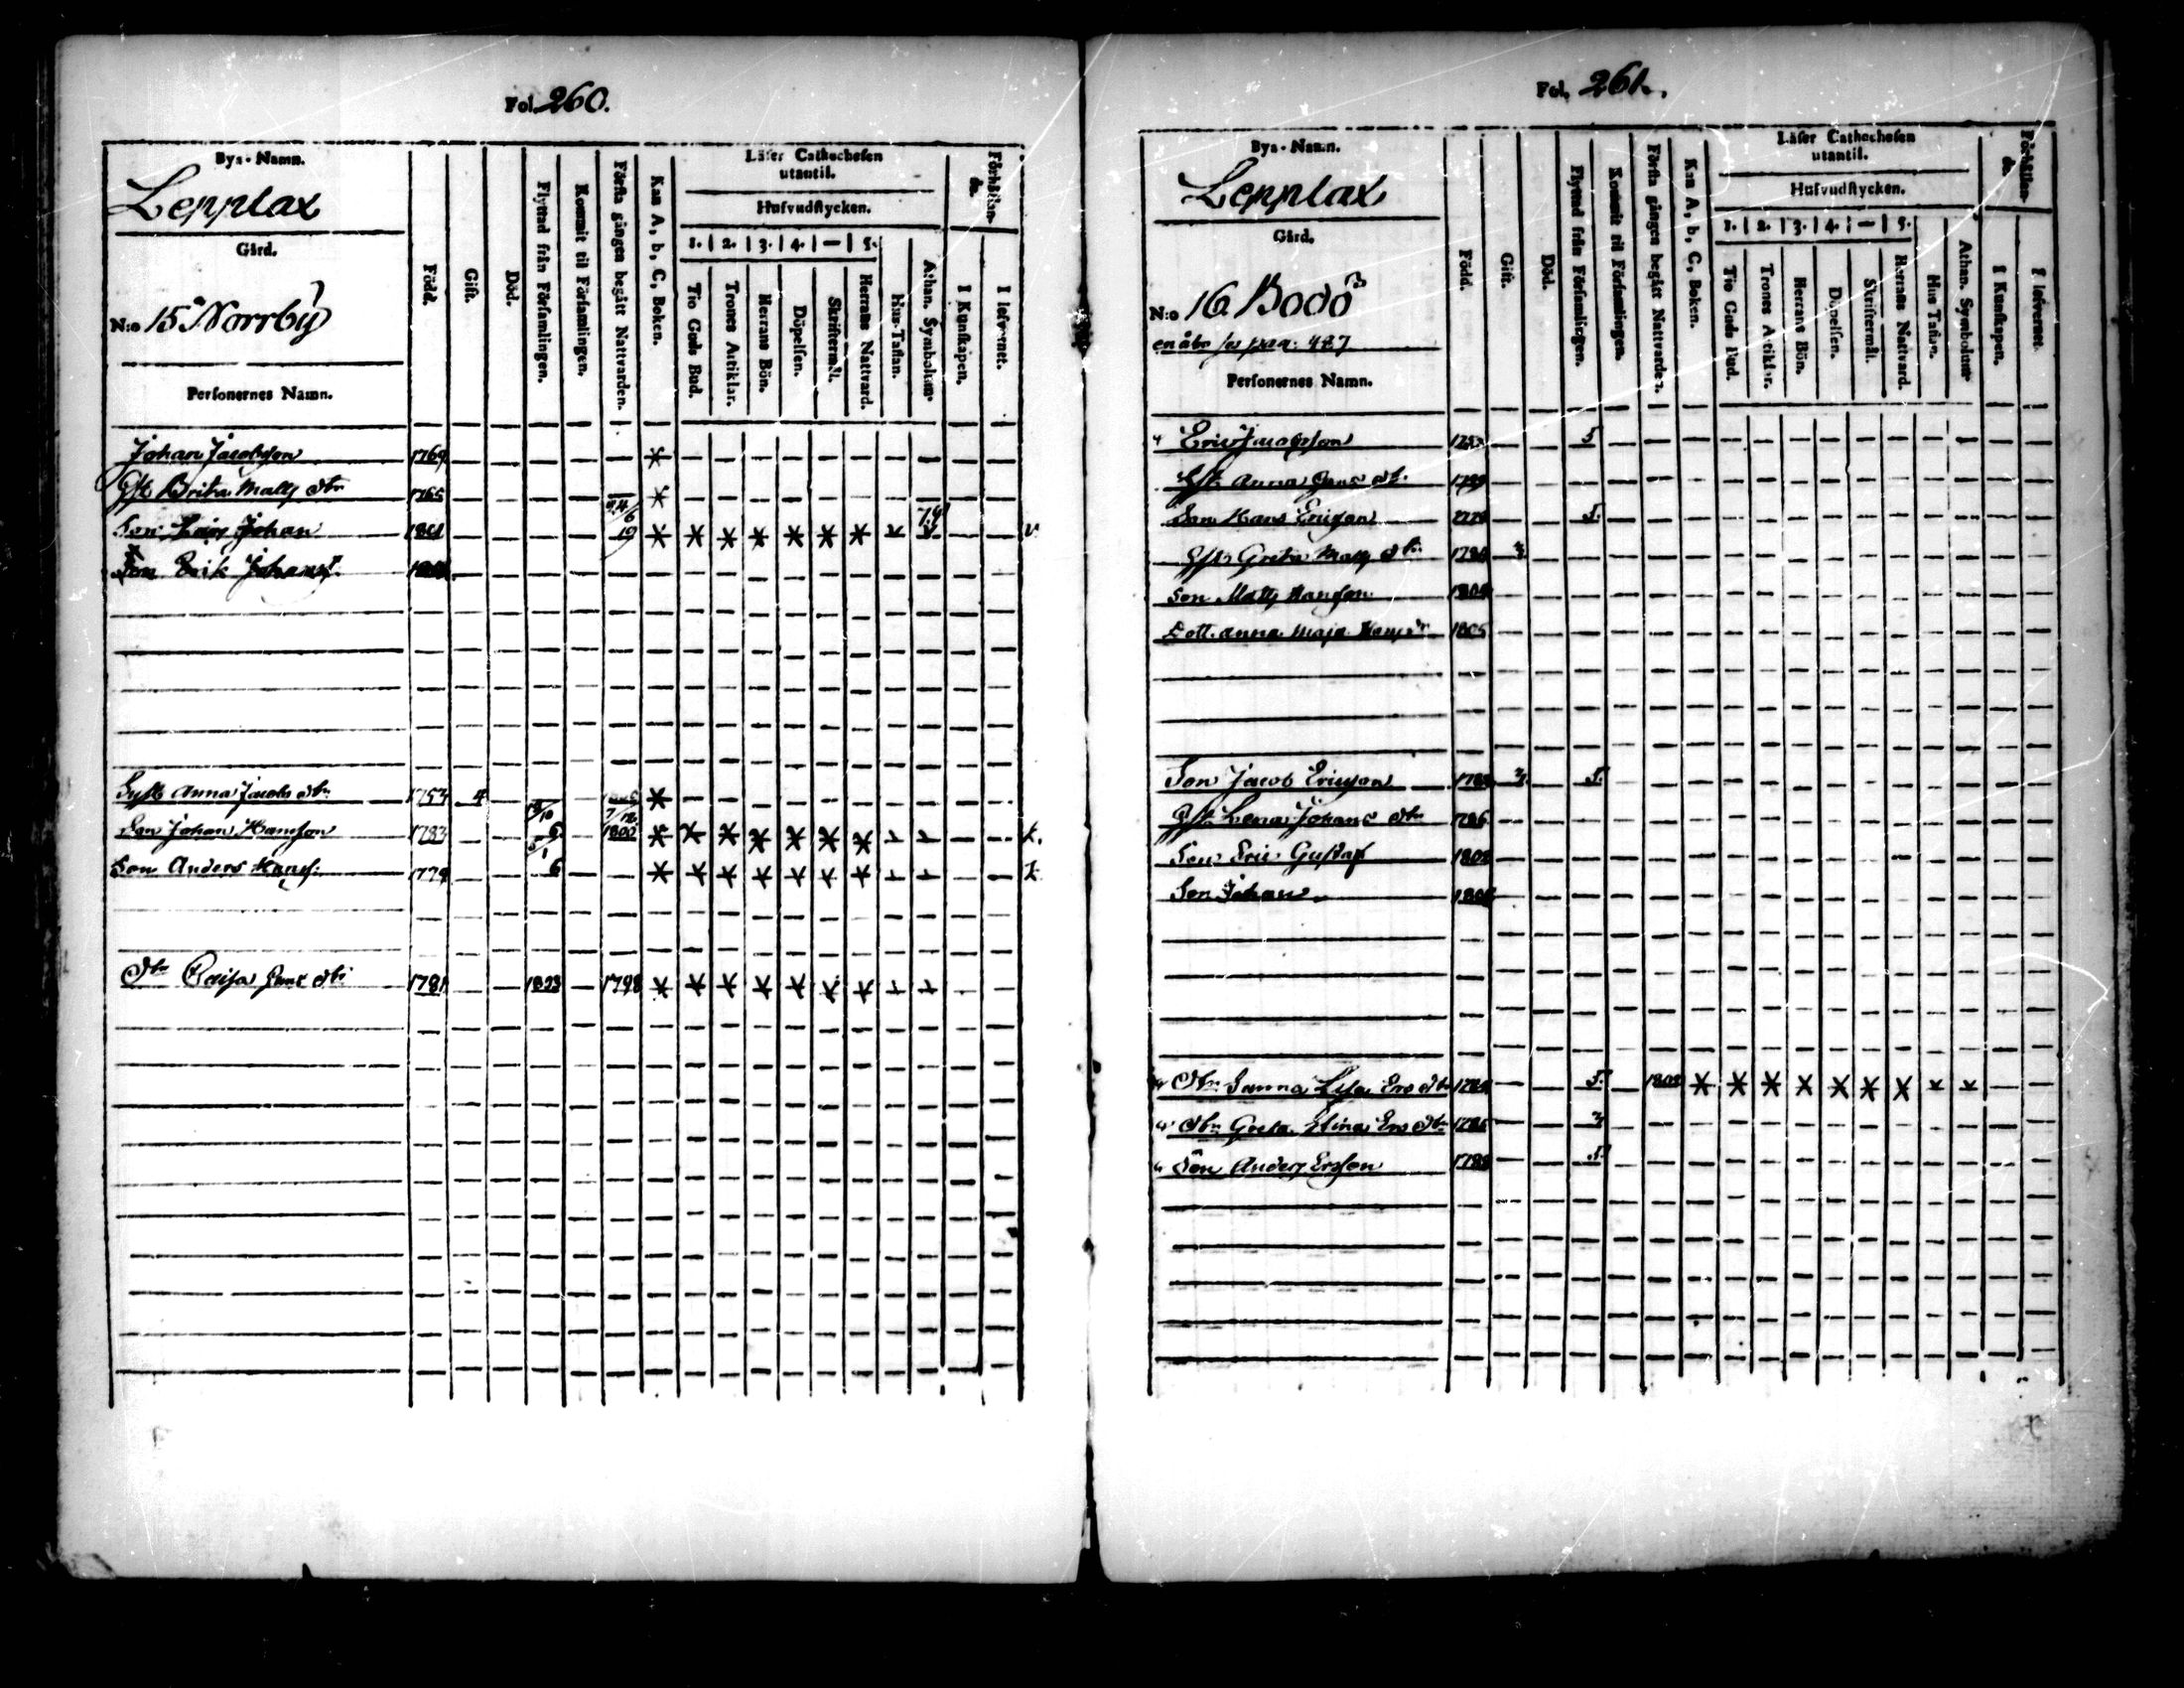 Fol. 260.
Bys-Namn.
Lepplax
Gård.
N:o 15 Norrby
Personernes Namn.
Född.
Gift.
Död.
Flyttad från Församlingen.
Kommit til Församlingen.
Första gången begått Nattvarden.
Kan A, b, C, Boken.
Läser Cathechesen
utantil.
Hufvudstycken.
1. 2. 3. 4. — 5.
Tio Guds Bud.
Trones Artiklar.
Herrans Bön.
Döpelsen.
Skriftermål.
Herrans Nattvard.
Hus-Taflan.
Athan. Symbolum.
Förhållan-
de.
I Kunskapen.
I lefvernet.
Johan Jacobsson 1769
Hst. Brita Matts dtr 1765
Son Lars Johan 19
Son Erik Johanss.
Syst. Anna Jacobs dtr 1753 4
Son Johan Hansson 1783 6 1800 k.
Son Anders Hanss. 1779 6 k
dtr Caisa Hans dtr 1781 1803 1798
Fol. 261.
Bys-Namn.
Lepplax
Gård.
N:o 16 Bodö
en åbo se pag. 427
Personernes Namn.
Född.
Gift.
Död.
Flyttad från Församlingen.
Kommit til Församlingen.
Första gången begått Nattvarden.
Kan A, b, C, Boken.
Läser Cathechesen
utantil.
Hufvudstycken.
1. 2. 3. 4. — 5.
Tio Guds Bud.
Trones Artiklar.
Herrans Bön.
Döpelsen.
Skriftermål.
Herrans Nattvard.
Hus Taflan.
Athan. Symbolum
Förhållan-
de.
I Kunskapen.
I lefvernet
Eric Jacobsson 5
Hst. Anna Hans dt.
Son Hans Ericson 5.
Hst. Greta Matts dtr
Son Matts Hanson
Dott. Anna Maja Hans dr 1805
Son Jacob Ericsson 5.
Hst. Lena Johans dtr 1786
Son Eric Gustaf
Son Johan
Dtr Sanna Lisa Ers dtr 5.
dtr Greta Stina Ers dtr
Son Anders Ersson 5.